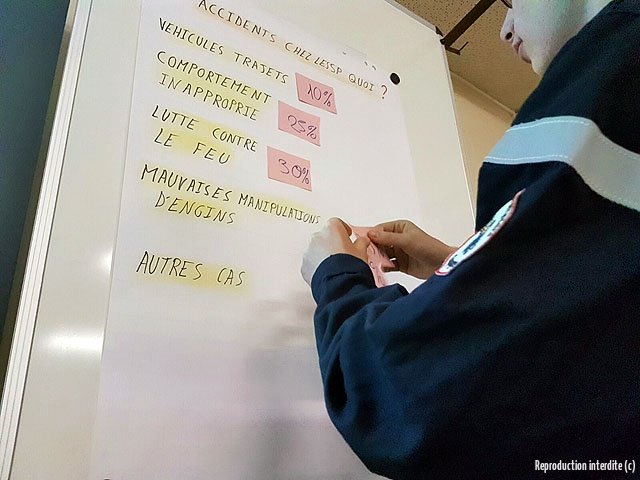 ACCIDENTS CHEZ LES SP QUOI ?
VEHICULES TRAJETS
10%
COMPORTEMENT
INAPPROPRIE
25%
LUTTE CONTRE
LE FEU
30%
MAUVAISES MANIPULATIONS
D'ENGINS
AUTRES CAS
Reproduction interdite (c)